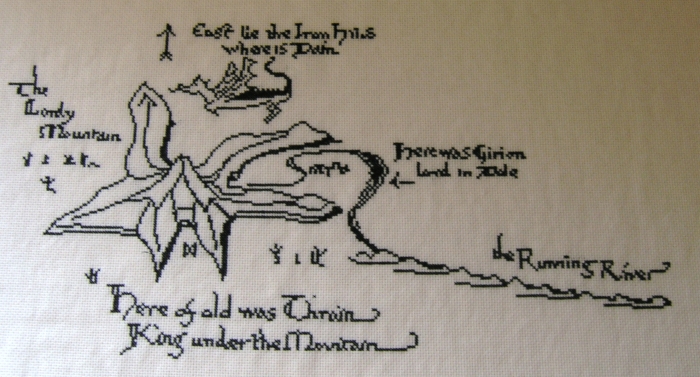 East lie the Iron Hills
where is Dain
The
Lonly
Mountain
Here was Girion
lord in Dale
the Running River
Here of old was Thrain
King under the Mountain